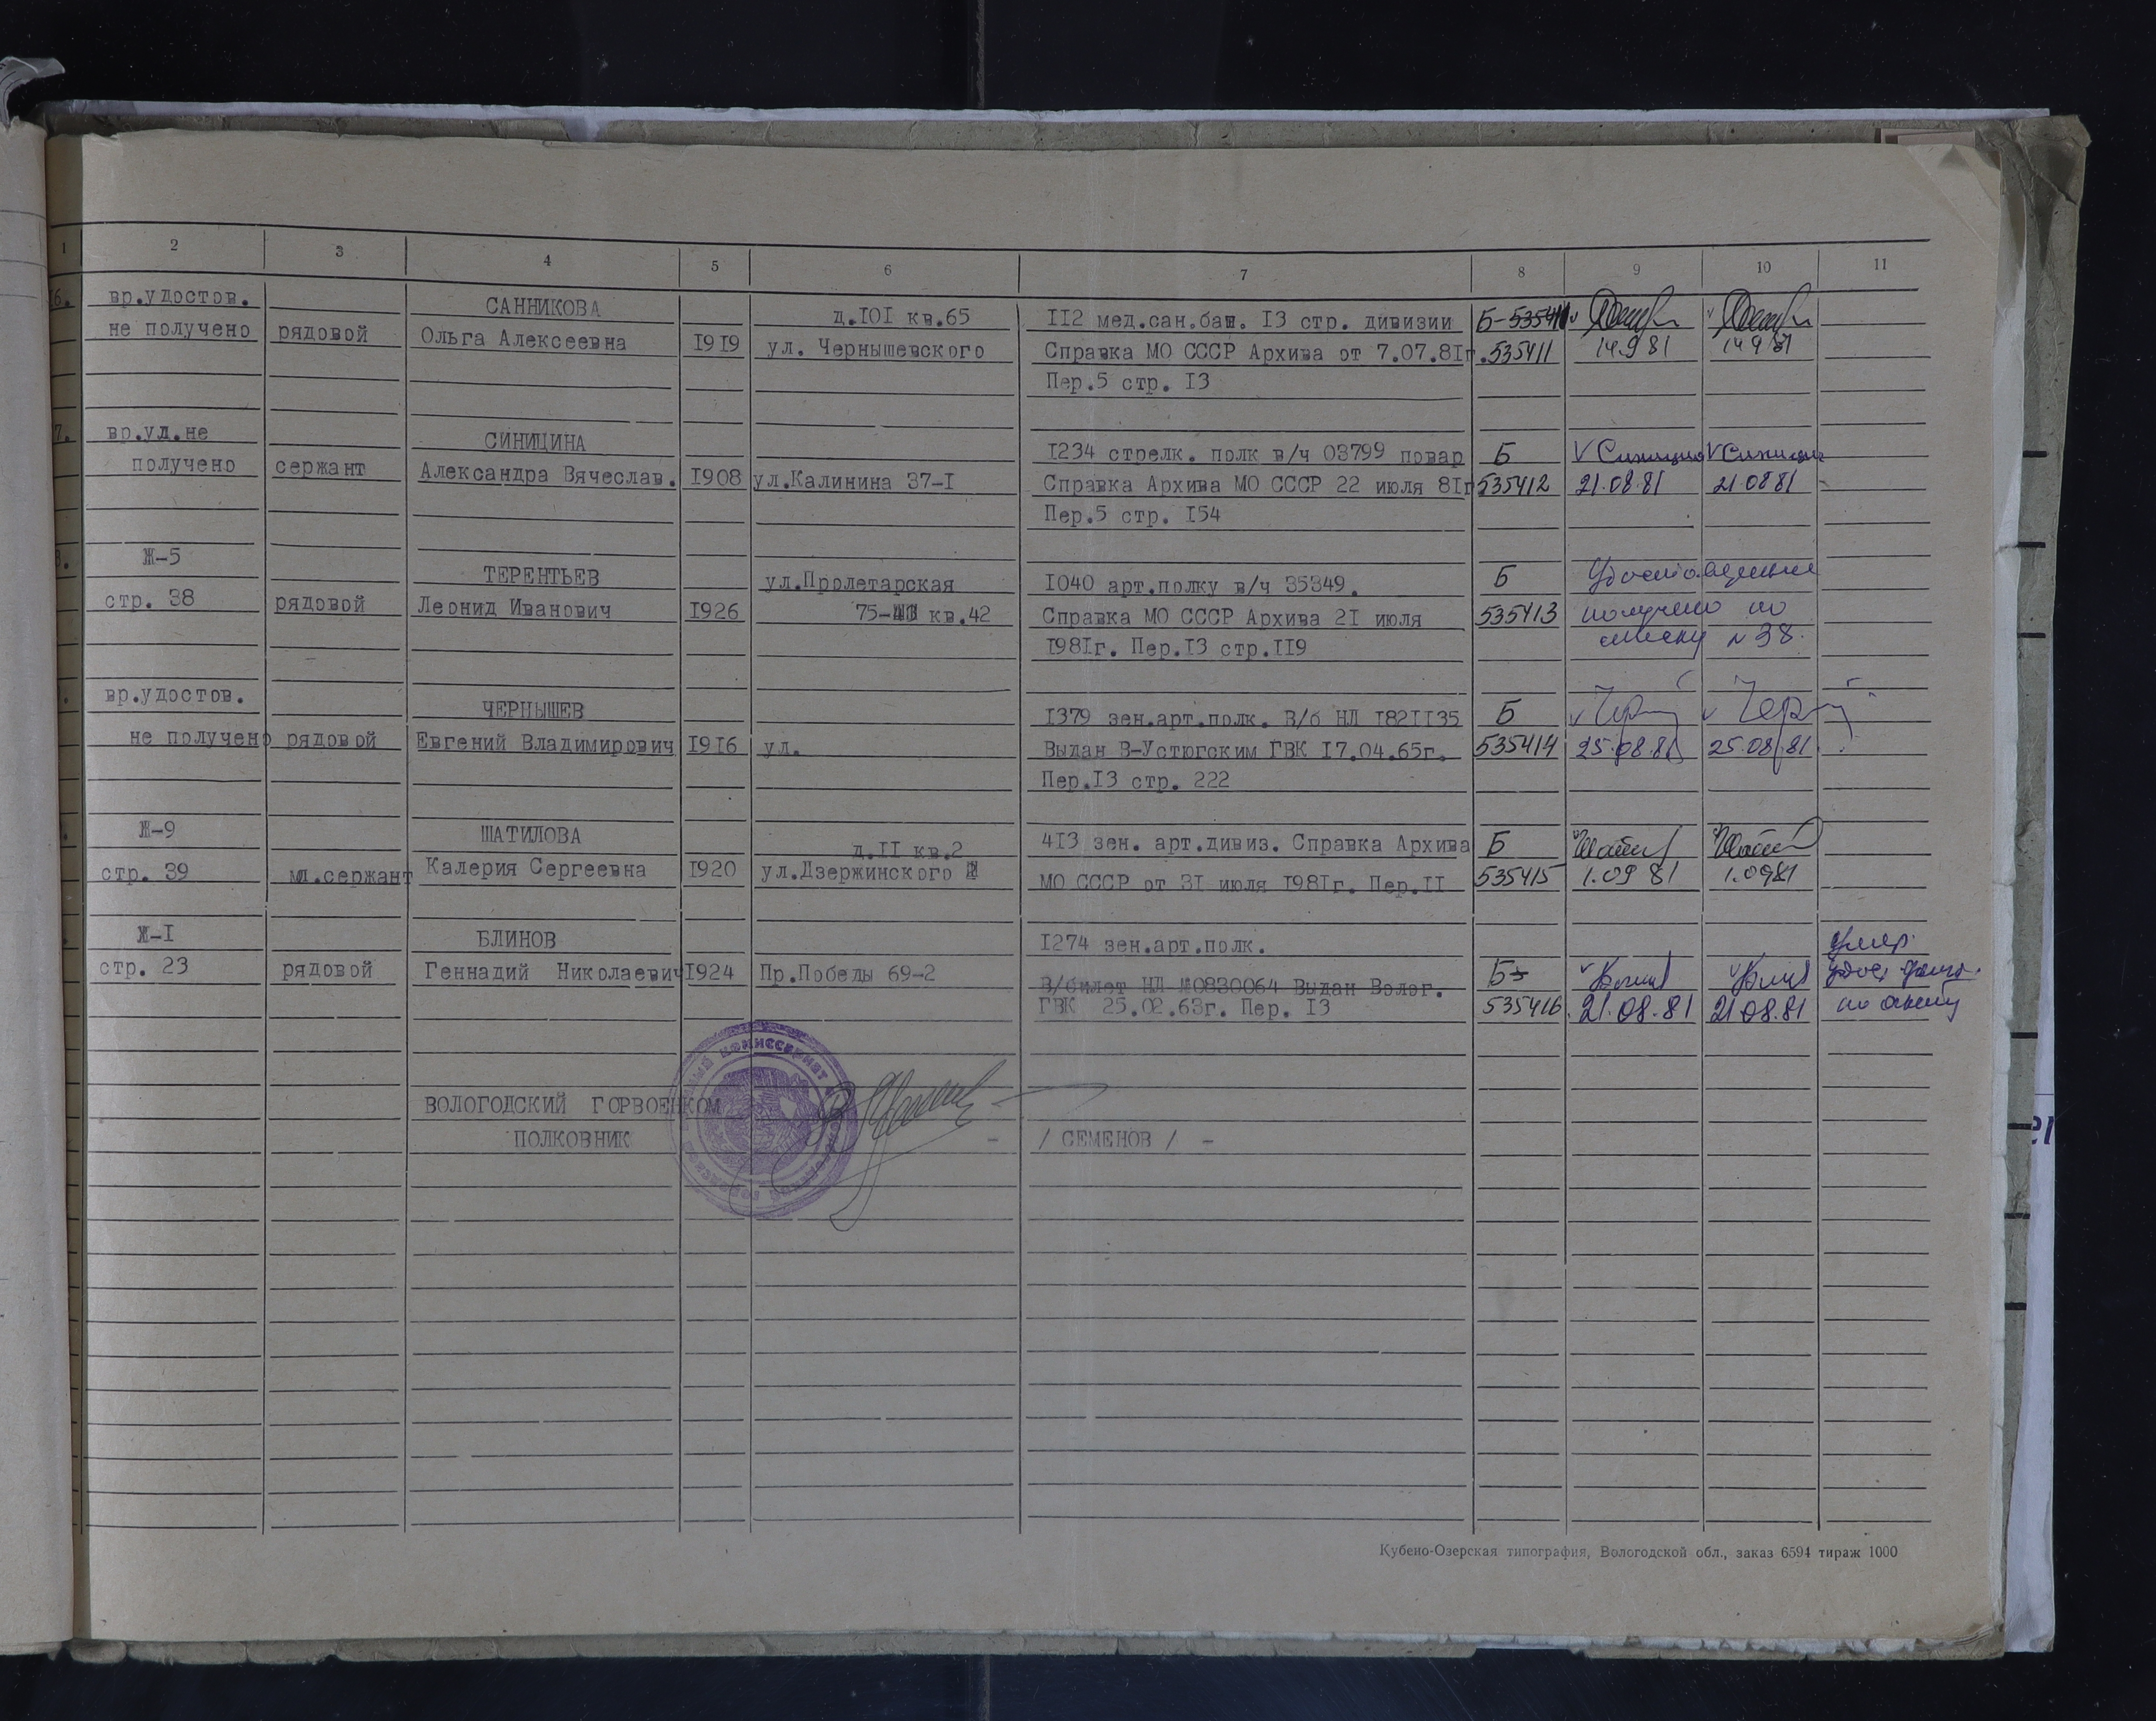 1 2 3 4 5 6 7 8 9 10 11
6. вр.удостов. САННИКОВА д.101 кв.65 112 мед.сан.бат. 13 стр. дивизии Б-
не получено рядовой Ольга Алексеевна 1919 ул. Чернышевского Справка МО СССР Архива от 7.07.81г. 535411 14.9 81 14 9 81
Пер.5 стр. 13
7. вр.уд.не СИНИЦИНА 1234 стрелк. полк в/ч 03799 повар Б
получено сержант Александра Вячеслав. 1908 ул.Калинина 37-1 Справка Архива МО СССР 22 июля 81г 535412 21.08.81 21.08 81
Пер.5 стр. 154
8. Ж-5 ТЕРЕНТЬЕВ ул.Пролетарская 1040 арт.полку в/ч 35349. Б Удостоверение
стр. 38 рядовой Леонид Иванович 1926 75- кв.42 Справка МО СССР Архива 21 июля 535413 получено по
1981г. Пер.13 стр.119 списку №38.
вр.удостов. ЧЕРНЫШЕВ 1379 зен.арт.полк. В/б НЛ 1821135 Б
не получено рядовой Евгений Владимирович 1916 ул. Выдан В-Устюгским ГВК 17.04.65г. 535414 25.08.81 25.08.81
Пер.13 стр. 222
Ж-9 ШАТИЛОВА д.11 кв.2 413 зен. арт.дивиз. Справка Архива Б
стр. 39 мл.сержант Калерия Сергеевна 1920 ул.Дзержинского МО СССР от 31 июля 1981г. Пер.11 535415 1.09 81 1.0981
Ж-1 БЛИНОВ 1274 зен.арт.полк. Умер.
стр. 23 рядовой Геннадий Николаевич 1924 Пр.Победы 69-2 В/билет НЛ №0830064 Выдан Волог. Б
ГВК 25.02.63г. Пер. 13 535416 21.08.81 21.08.81 по
ВОЛОГОДСКИЙ ГОРВОЕНКОМ
ПОЛКОВНИК - / СЕМЕНОВ / -
Кубено-Озерская типография, Вологодской обл., заказ 6594 тираж 1000